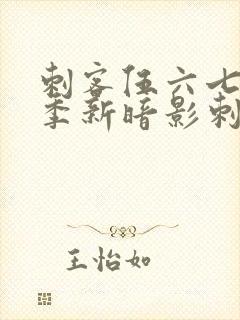 刺客伍六七
季新暗影刺
王怡如